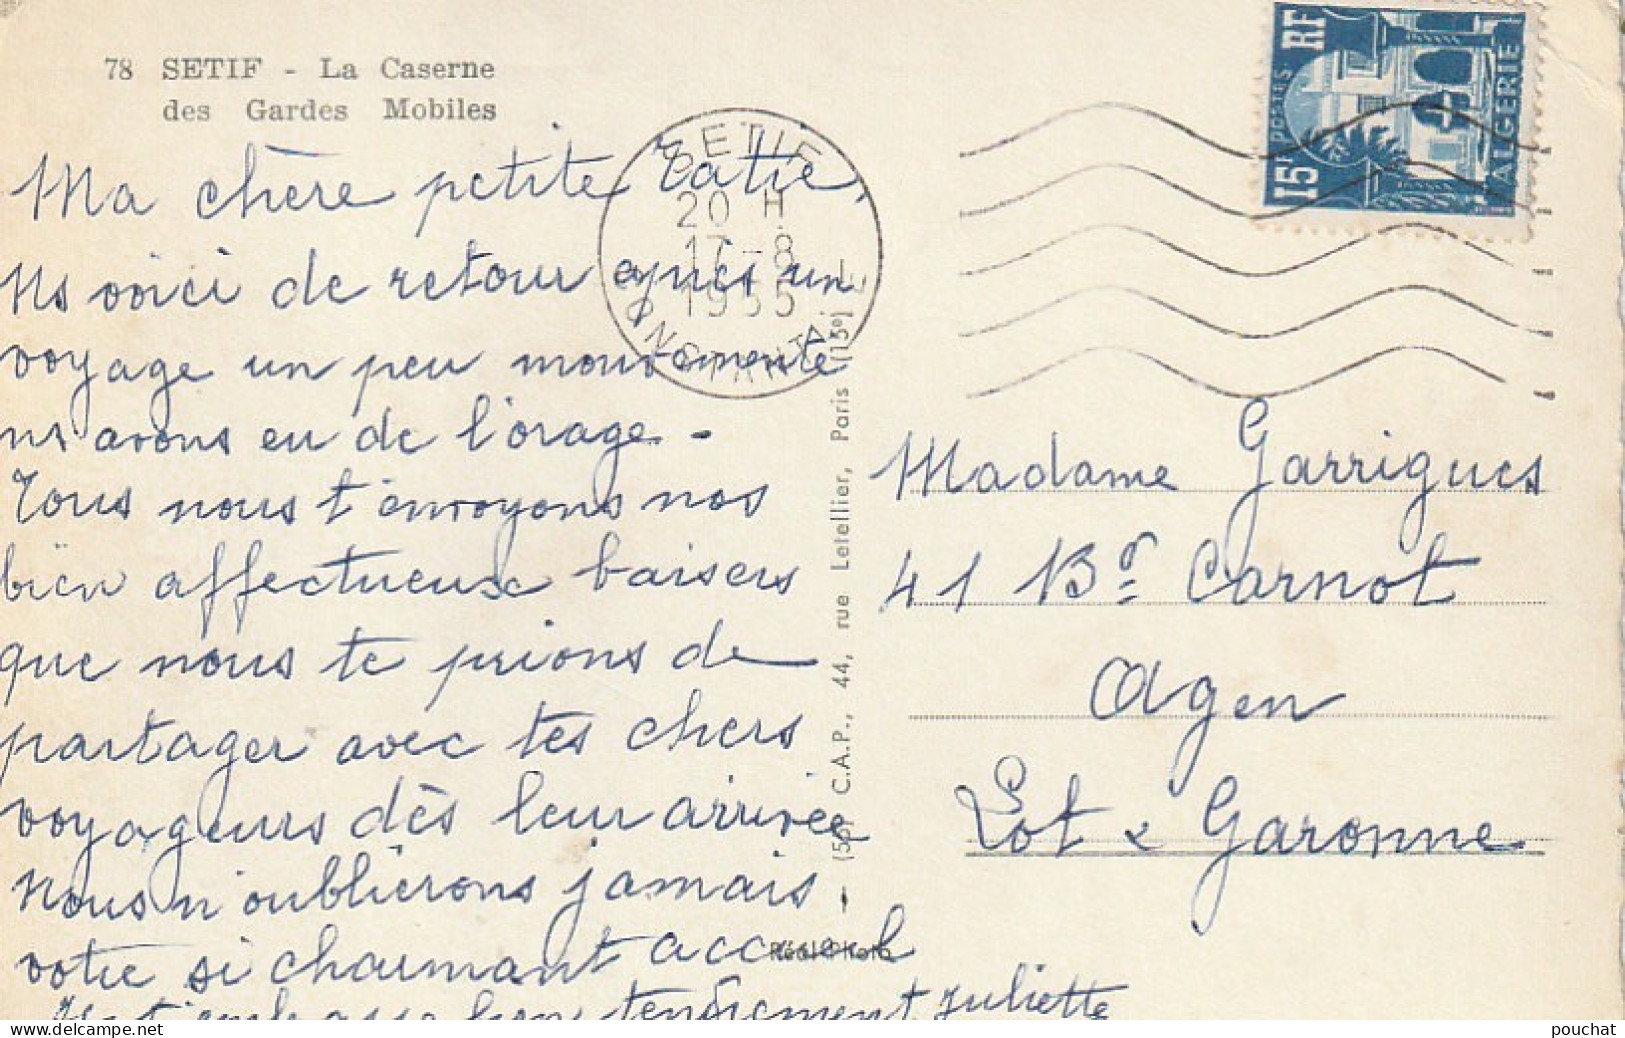 78 SETIF - La Caserne
des Gardes Mobiles
SETIF
20 H
17-8
1955
CONSTANTINE
POSTES RF
15F
ALGERIE
Ma chère petite Tatie,
Ns voici de retour après un
voyage un peu mouvementé
ns avons eu de l'orage -
Tous nous t'envoyons nos
bien affectueux baisers
que nous te prions de
partager avec tes chers
voyageurs dès leur arrivée
Nous n'oublierons jamais
votre si charmant accueil
t'embrasse bien tendrement Juliette
C.A.P., 44, rue Letellier, Paris (15e)
Réal-Photo
Madame Garrigues
41 Bd Carnot
Agen
Lot & Garonne
pouchat